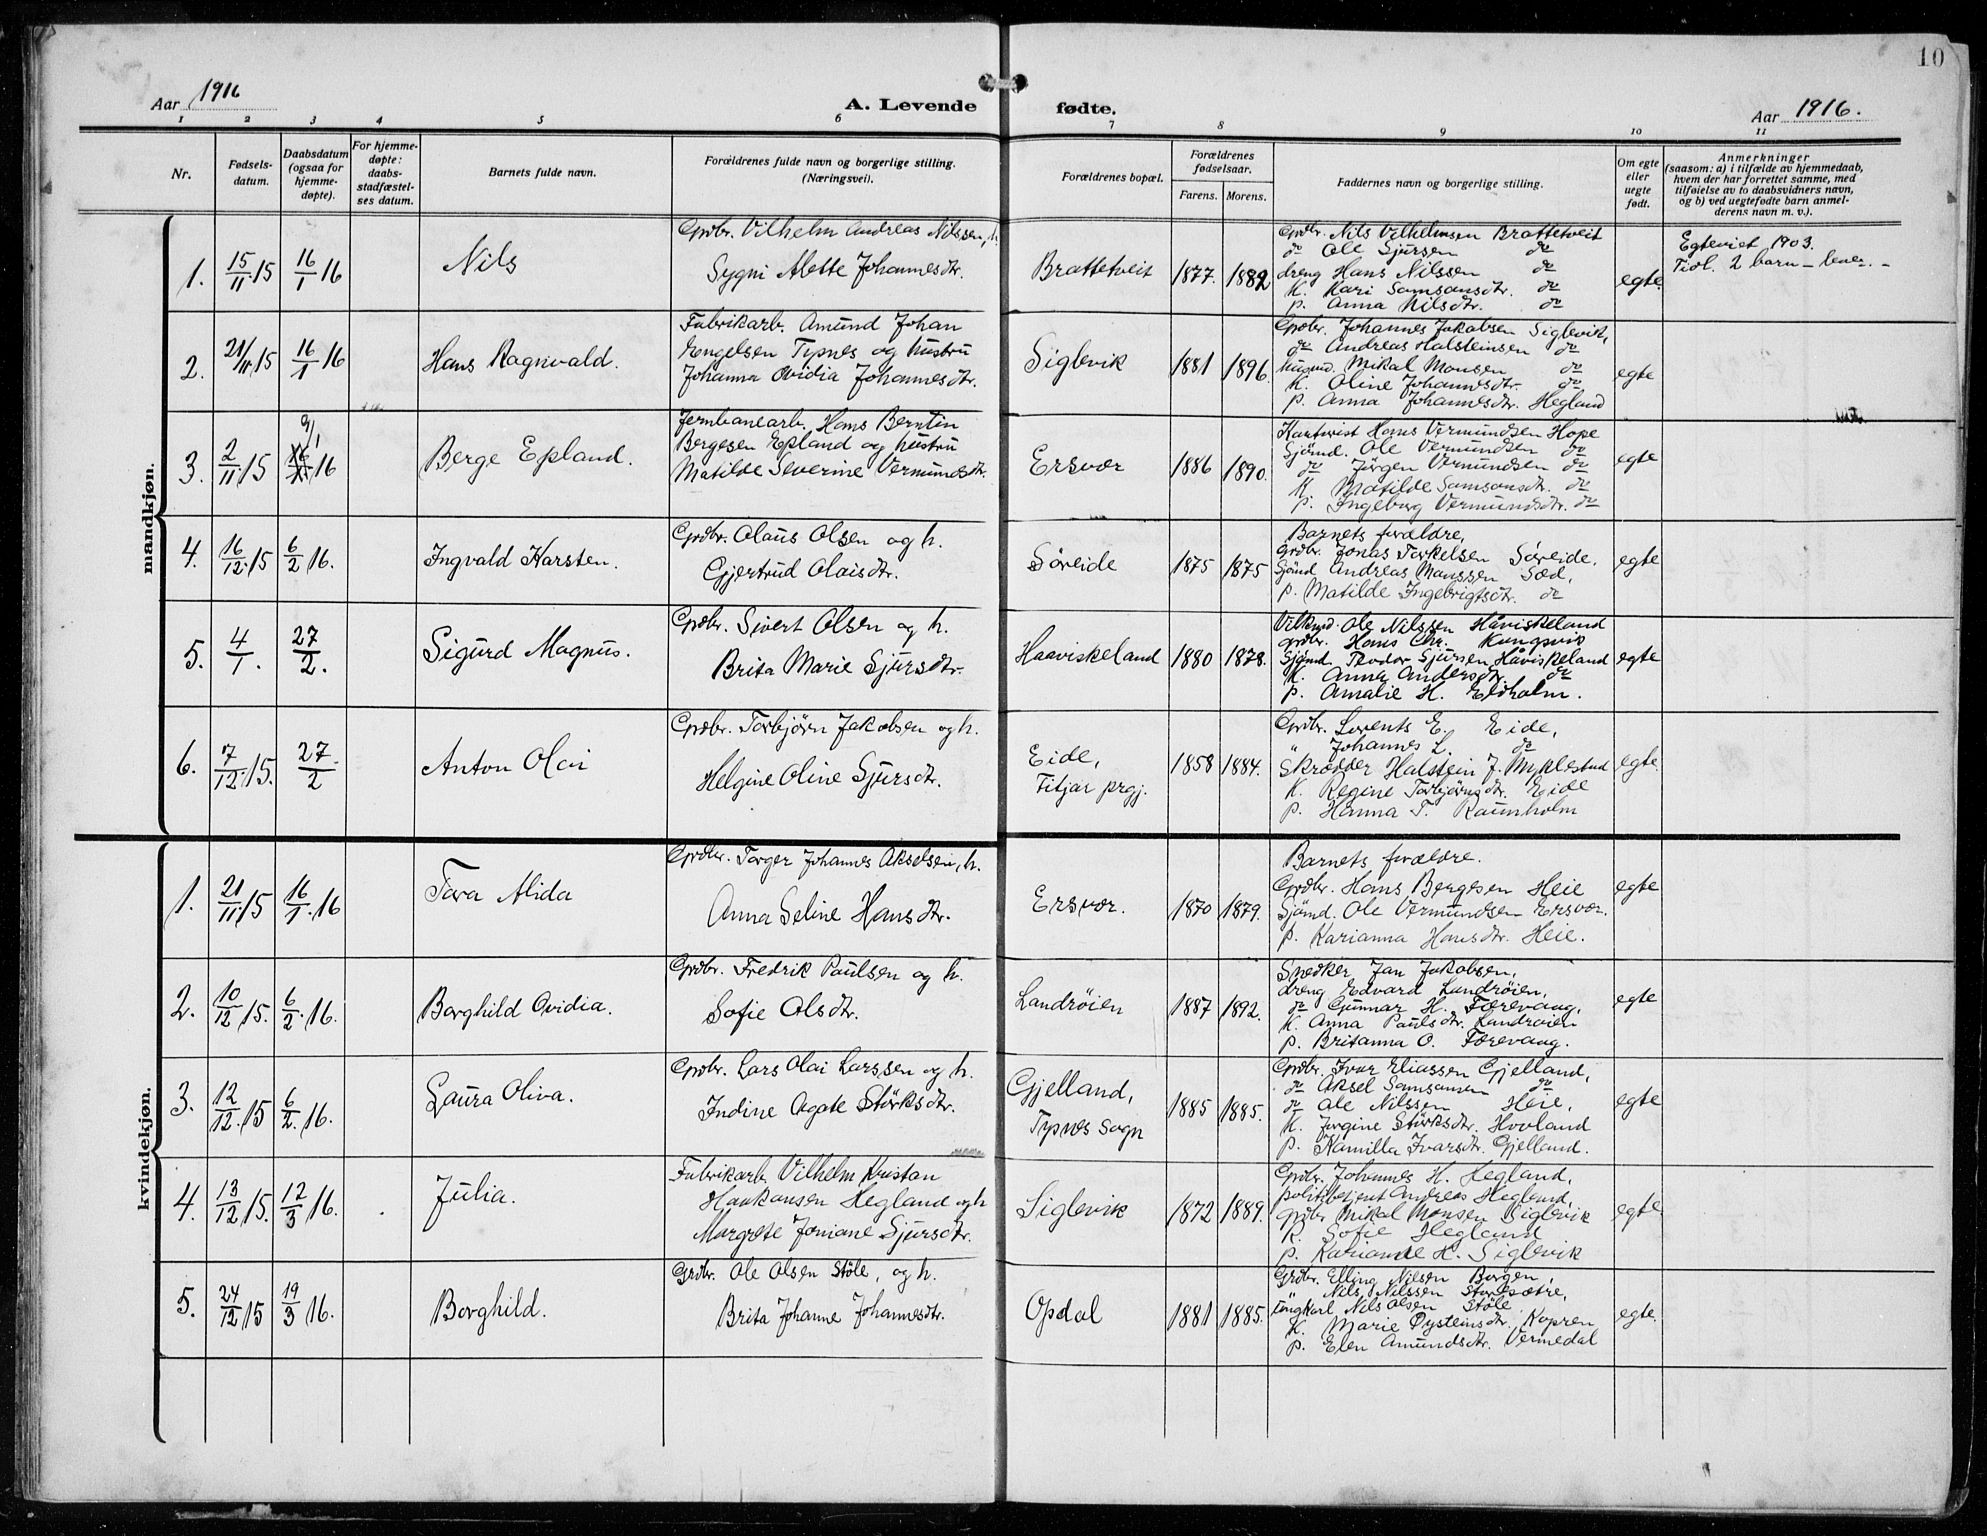 10
Aar 1916
A. Levende fødte.
Aar 1916.
1 2 3 4 5 6 7 8 9 10 11
Nr.
Fødsels-
datum.
Daabsdatum
(ogsaa for
hjemme-
døpte).
For hjemme-
døpte:
daabs-
stadfæstel-
ses datum.
Barnets fulde navn.
Forældrenes fulde navn og borgerlige stilling.
(Næringsvei).
Forældrenes bopæl.
Forældrenes
fødselsaar.
Farens. Morens.
Faddernes navn og borgerlige stilling.
Om egte
eller
uegte
født.
Anmerkninger
(saasom: a) i tilfælde av hjemmedaab,
hvem der har forrettet samme, med
tilføielse av to daabsvidners navn,
og b) ved uegtefødte barn anmel-
derens navn m. v.).
mandkjøn.
1. 15/11 15 16/1 16 Nils
Grdbr. Vilhelm Andreas Nilssen, h.
Sygni Alette Johannesdtr.
Brattetveit 1877. 1882
Grdbr. Nils Vilhelmsen Brattetveit
do Ole Sjursen do
dreng Hans Nilssen do
K. Kari Samsonsdtr. do
p. Anna Nilsdtr. do
egte.
Egteviet 1903.
Tidl. 2 barn – lever. –
2. 21/11 15 16/1 16 Hans Ragnvald.
Fabrikarb. Amund Johan
Engelsen Typnes og hustru
Johanna Ovidia Johannesdtr.
Siglevik 1881 1896.
Grdbr. Johannes Jakobsen Siglevik,
do Andreas Halsteinsen do
husmd. Mikal Monsen do
K. Oline Johannesdtr. do
p. Anna Johannesdtr. Hegland
egte
3. 2/11 15 9/1 16 Berge Epland.
Jernbanearb. Hans Berntin
Bergesen Epland og hustru
Matilde Severine Vermundsdtr.
Ersvær 1886 1890.
Hans Vermundsen Hope
Sjömd. Ole Vermundsen do
do Jörgen Vermundsen do
K. Matilde Samsonsdtr. do
p. Ingeborg Vermundsdtr. do
egte
4. 16/12 15 6/2 16. Ingvald Karsten.
Grdbr. Olaus Olsen og h.
Gjertrud Olaisdtr.
Söreide 1875 1875
Barnets forældre,
grdbr. Jonas Torkelsen Söreide.
Sjömd Andreas Monssen Sæd,
p. Matilde Ingebrigtsdtr. do
egte
5. 4/1. 27/2. Sigurd Magnus.
Grdbr. Sivert Olsen og h.
Brita Marie Sjursdtr.
Haaviskeland 1880 1878.
Ole Nilssen Håviskeland
grdbr. Hans Chr. Kongsvik
Sjömd. Teodor Sjursen Håviskeland
K. Anna Andersdtr. do
p. Amalie H. Eidholm.
egte
6. 7/12. 15. 27/2 Anton Olai
Grdbr. Torbjörn Jakobsen og h.
Helgine Oline Sjursdtr.
Eide,
Fitjar prgj.
1858 1884.
Grdbr. Lorents E. Eide,
" Johannes L. do
Skrædder Halstein J. Myklestad
K. Regine Torbjörnsdtr. Eide
p. Hanna T. Raunholm
egte.
kvindekjøn.
1. 21/11 15 16/1. 16 Tora Alida
Grdbr. Torger Johannes Akselsen, h.
Anna Seline Hansdtr.
Ersvær. 1870 1879.
Barnets forældre.
Grdbr. Hans Bergesen Heie
Sjömd. Ole Vermundsen Ersvær.
p. Karianna Hansdtr. Heie.
egte
2. 10/12 15. 6/2. 16. Borghild Ovidia.
Grdbr. Fredrik Paulsen og h.
Sofie Olsdtr.
Landröien 1887 1892.
Snedker Jan Jakobsen,
dreng Edvard Landröien,
do Gunnar H. Færevaag.
K. Anna Paulsdtr. Landröien
p. Britanna O. Færevaag.
egte
3. 12/12. 15 6/2. 16. Laura Oliva.
Grdbr. Lars Olai Larssen og h.
Indine Agate Störksdtr.
Gjelland,
Typnes Sogn
1885 1885.
Grdbr. Ivar Eliassen Gjelland,
do Aksel Samsonsen do
do Ole Nilssen Heie,
K. Jörgine Störksdtr. Hovland
p. Kamilla Ivarsdtr. Gjelland.
egte
4. 13/12 15. 12/3 16. Julia.
Fabrikarb. Vilhelm Kristan
Haakonsen Hegland og h
Margrete Joniane Sjursdtr.
Siglevik 1872 1889.
Grdbr. Johannes H. Hegland,
politibetjent Andreas Hegland,
grdbr Mikal Monsen Siglevik
K. Sofie Hegland
p. Karianne H. Siglevik
egte
5. 24/12 15 19/3 16. Borghild.
Grdbr. Ole Olsen Stöle, og h.
Brita Johanne Johannesdtr.
Opdal 1881 1885.
Grdbr. Elling Nilsen Borgen,
" Nils Nilssen Störksætre,
ungkarl Nils Olsen Stöle
K. Marie Öysteinsdtr. Kopren
p. Elen Amundsdtr. Vermedal
egte.